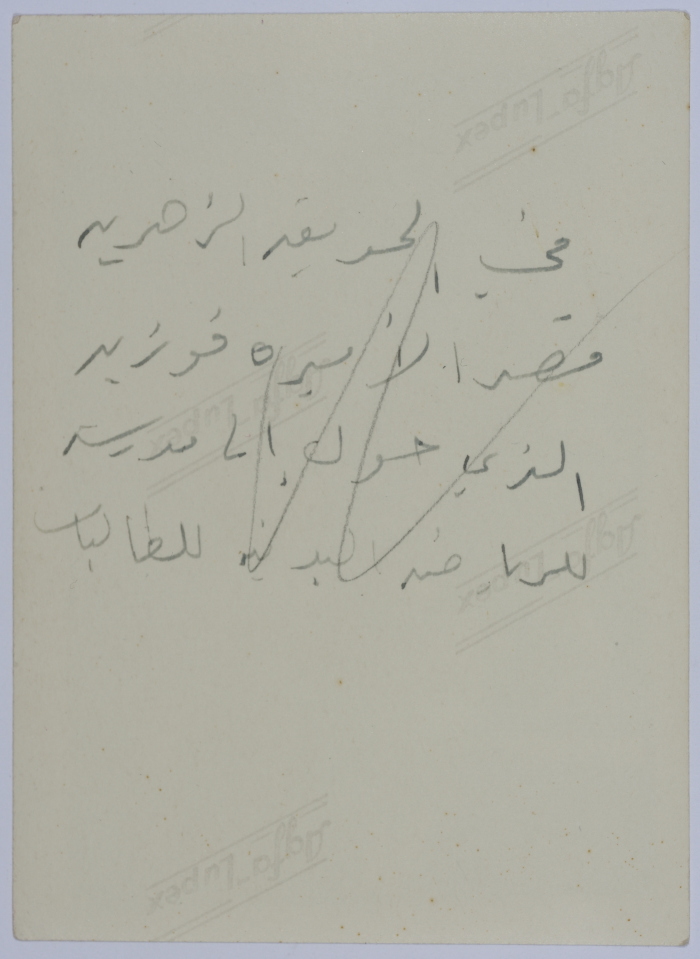 في الحديقه الزهريه
قصر الاميره فوزيه
الذي حول الى مدرسة
للرياضه البدنية للطالبات
Agfa Lupex
Agfa Lupex
Agfa Lupex
Agfa Lupex